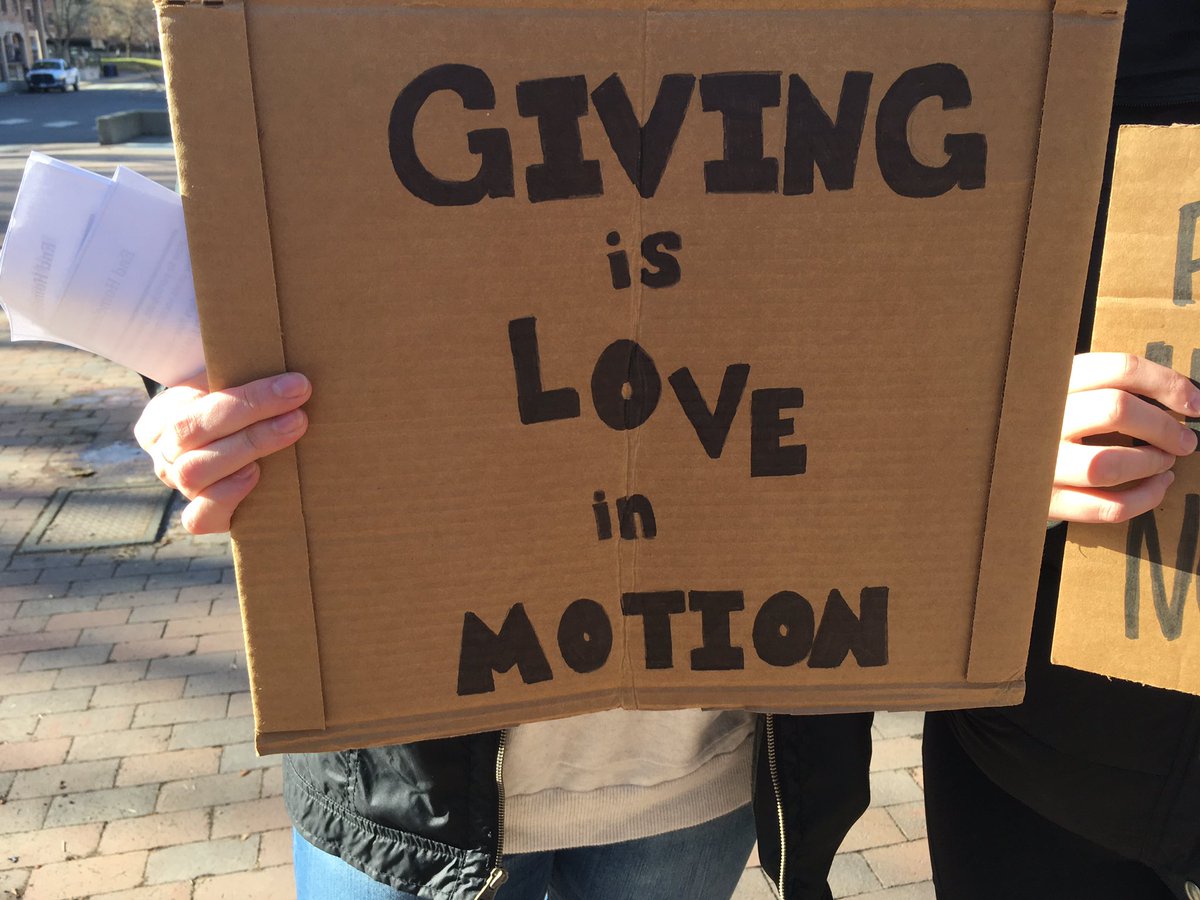 GIVING
is
LOVE
in
MOTION